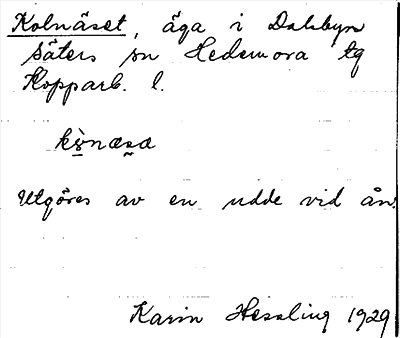 Kolnäset, äga i Dalsbyn
Säters sn Hedemora tg
Kopparb. l.
kò̤næsa
Utgöres av en udde vid ån.
Karin Hessling 1929